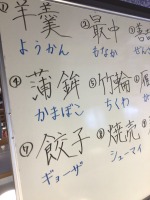 ①羊羹 ②最中
ようかん もなか ぜん
④蒲鉾 ⑤竹輪
かまぼこ ちくわ
⑦餃子 ⑧焼売
ギョーザ シューマイ